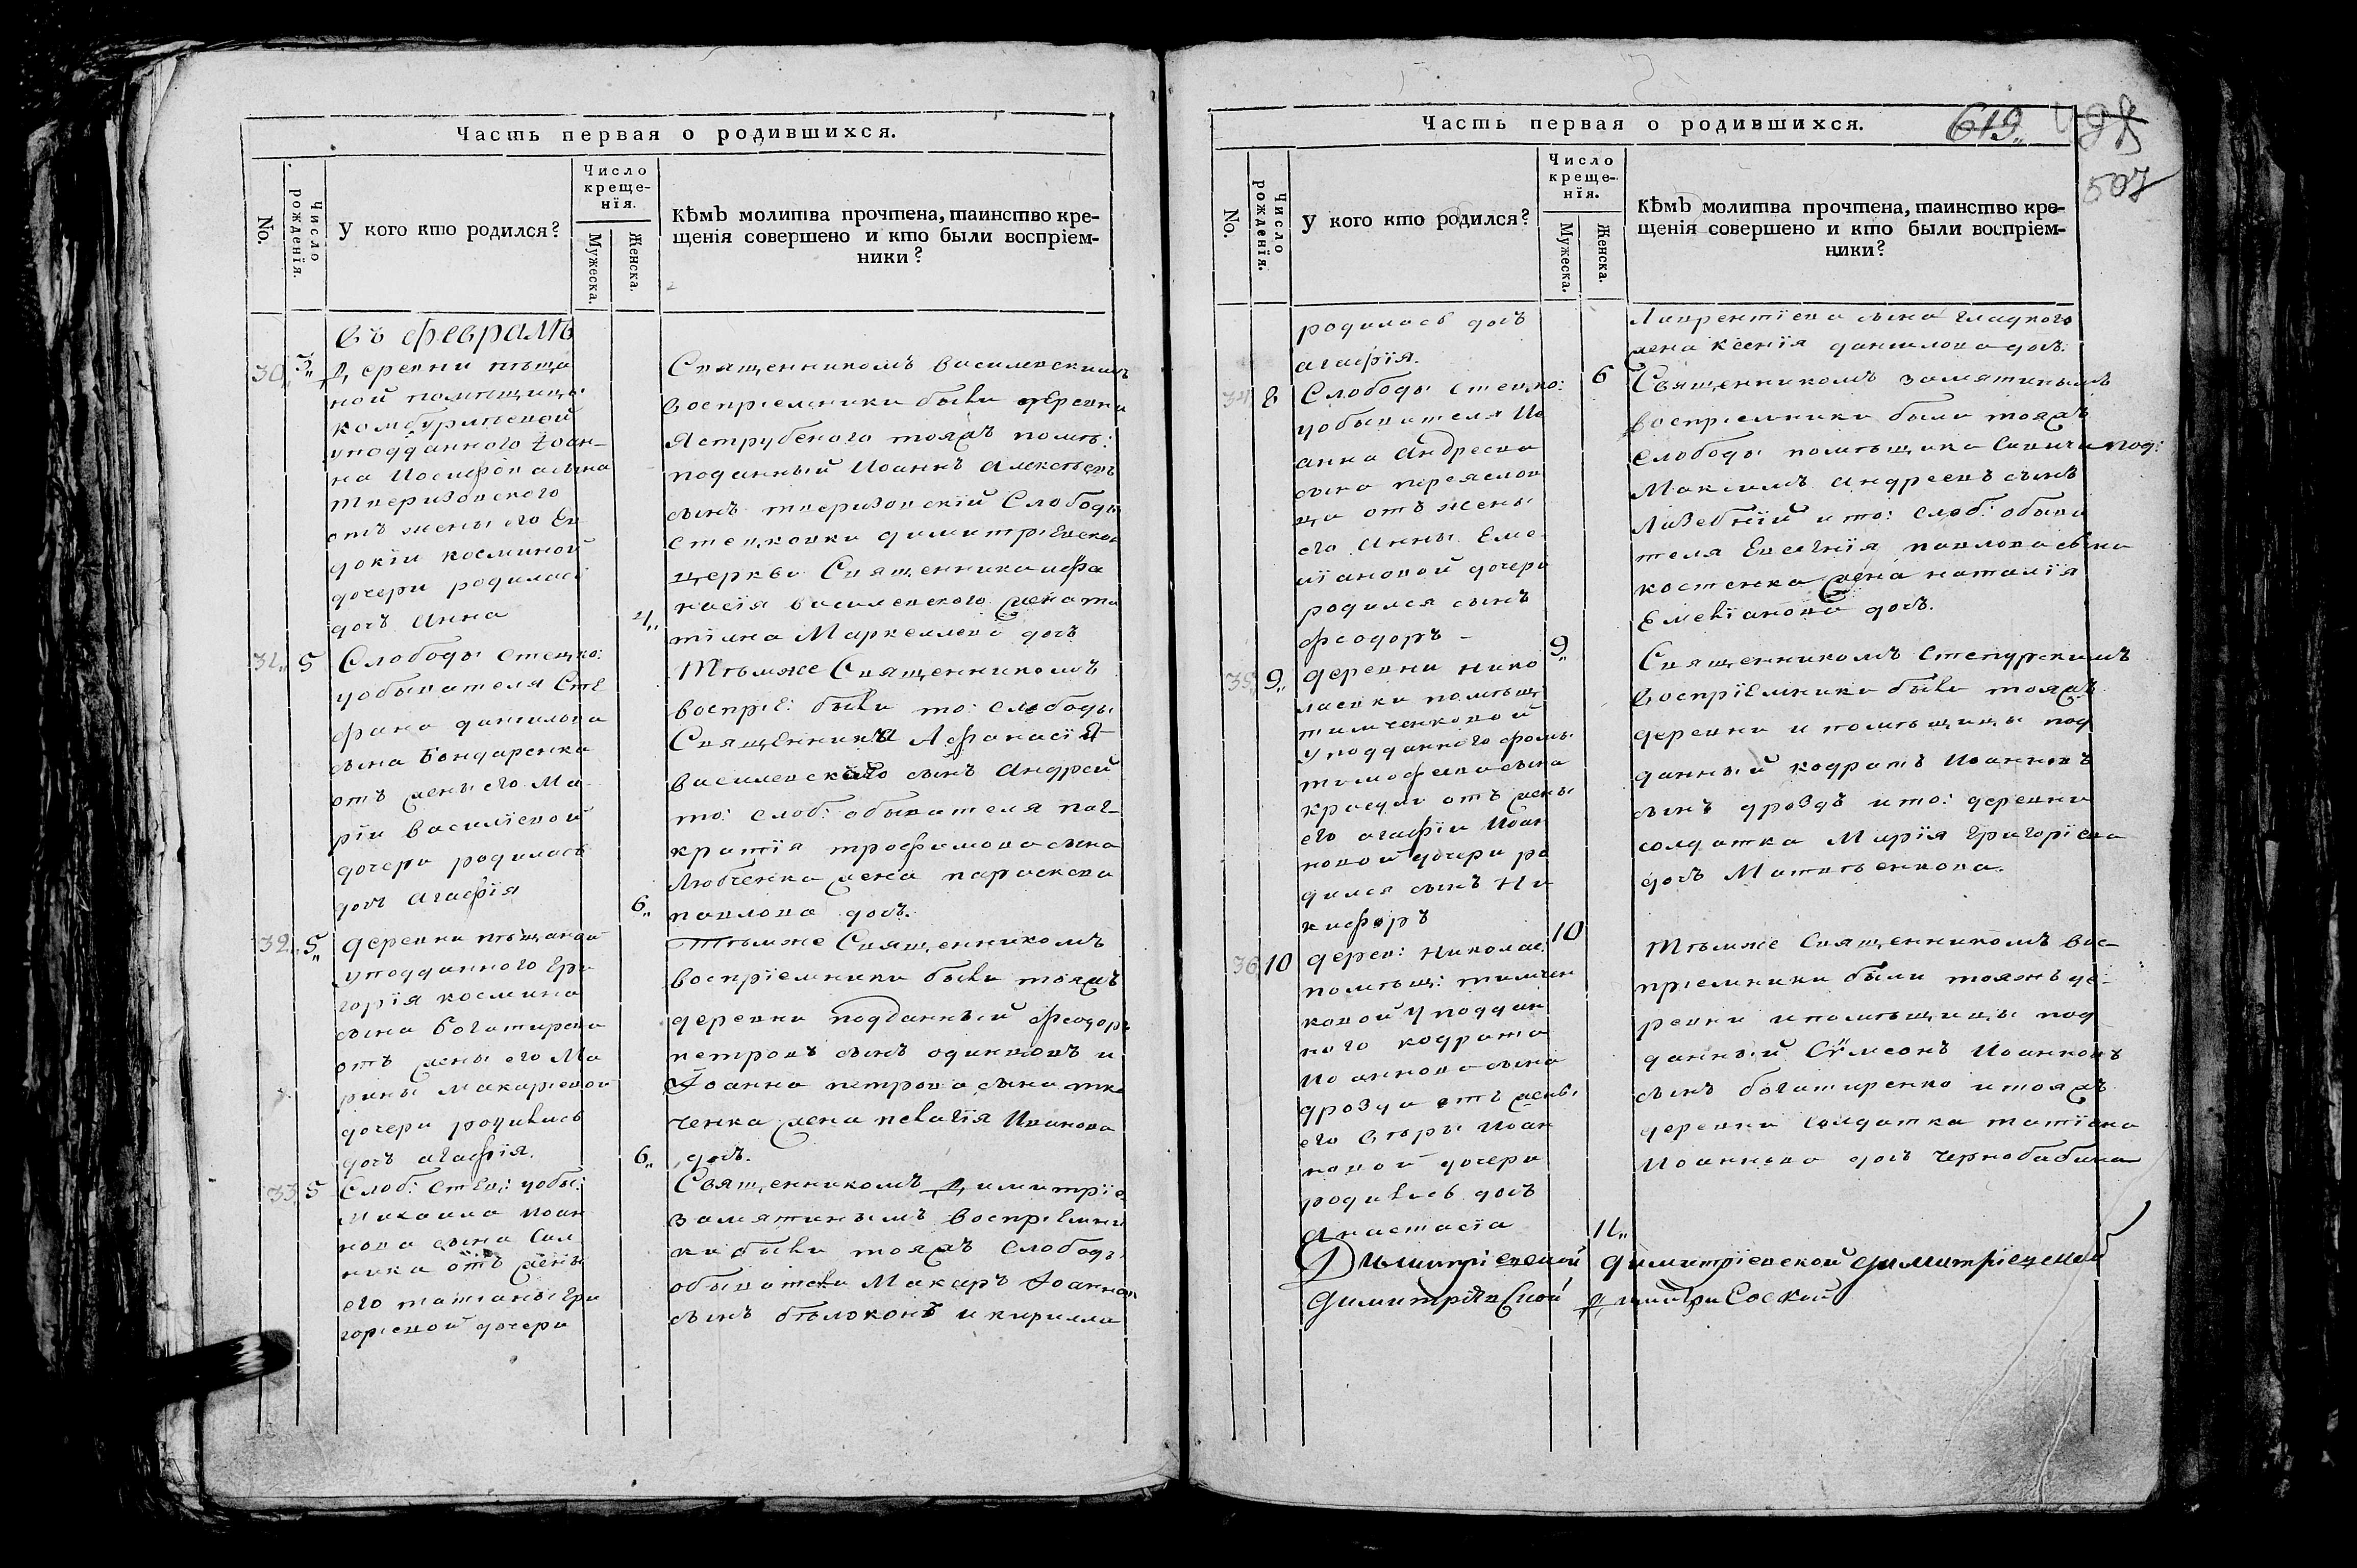 Часть первая о родившихся.
No.
Число рожденія.
У кого кто родился?
Число
креще-
нїя.
Мужеска.
Женска.
Кѣмъ молитва прочтена, таинство кре-
щенія совершено и кто были воспріем-
ники?
въ февралѣ
30,, 3,, Деревни пѣща
ной помѣщицы
комбурлеевой
у подданного Іоан-
на Иосифова сына
тверизовского
отъ жены его Ев
докіи косминой
дочери родилась
дочь Анна
4,,
Священникомъ василевскимъ
воспріемники были деревни
Яструбеного тояжъ помѣ:
поданный Иоаннъ Алексѣевъ
сынъ тверизовскій Слободы
стецковки димитріевской
церкви Священника Афа
насія василевского жена та
тіяна Маркеллова дочь
31,, 5 Слободы стецко:
у обывателя Сте
фана данилова
сына Бондаренка
отъ жены его Ма
ріи василіевой
дочери родилась
дочь Агафія
6,,
Тѣмже Священникомъ
воспріе: были то: слободы
Священника Афанасія
василевского сынъ Андрей
то: слоб: обывателя пан-
кратія трофимова сына
Любченка жена параскева
павлова дочь.
32,, 5,, деревни пѣщаной
у подданного Гри
горія космина
сына Богатирева
отъ жены его Ма
рины Макаріевой
дочери родилась
дочь агафія.
6,,
Тѣмже Священникомъ
воспріемники были тояжъ
деревни подданный феодоръ
петровъ сынъ одинцовъ и
Іоанна петрова сына тка
ченка жена пелагія Иванова
дочь.
33, 5 Слоб: Стец: у обы:
Михаила Иоан
нова сына Сал
ника отъ жены
его татіаны Гри
горіевой дочери
Священникомъ Димитріе
замятинымъ воспріемни
ки были тояжъ слободы
обыватели Макаръ Іоанновъ
сынъ бѣлоконь и кирилла
Часть первая о родившихся.
619,,
507
No.
Число рожденія.
У кого кто родился?
Число
креще-
нїя.
Мужеска.
Женска.
Кѣмъ молитва прочтена, таинство кре-
щенія совершено и кто были воспріем-
ники?
родилась дочь
агафія.
6
Лаврентіева сына гладкого
жена ксенія данилова дочь.
34, 8 Слободы стецко:
у обывателя Ио
анна Андреева
сына переяслов
ца отъ жены
его Анны Еме
ліановой дочери
родился сынъ
феодоръ -
9,,
Священникомъ замятинымъ
воспріемники были тояжъ
слободы помѣщика Савича под:
Максимъ Андреевъ сынъ
Лазебній и то: слоб: обыва
теля Евсигнія павлова сына
костенка жена наталія
Емеліанова дочь.
35,, 9,, деревни нико
лаевки помѣщ:
тимченковой
у подданного фомы
тимофеева сына
красули отъ жены
его агафіи Иоан
новой дочери ро
дился сынъ Ни
кифоръ
10
Священникомъ степурскимъ
воспріемники были тояжъ
деревни и помѣщицы под
данный кодратъ Иоанновъ
сынъ дроздъ и то: деревни
солдатка Марія Григоріева
дочь Мататвенкова.
36 10 дерев: Николае:
помѣщ: тимчен
ковой у поддан
ного кодрата
Иоаннова сына
дрозда отъ жены
его вѣры Иоан
новой дочери
родилась дочь
Анастасіа
11,,
Тѣмже Священникомъ вос-
пріемники были тояжъ де-
ревни и помѣщицы под
данный Сумеонъ Иоанновъ
сынъ богатиренко и тояжъ
деревни солдатка татіана
Иоаннова дочь чернобабина
Димитріевской димитріевской димитріевской
димитріевской Димитриевской